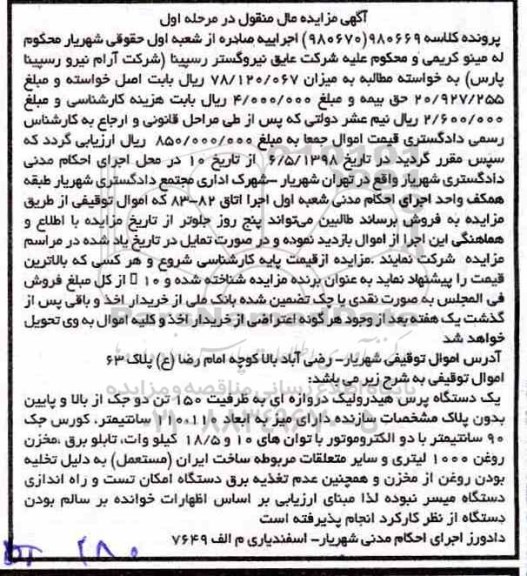 آگهی مزایده مال منقول در مرحله اول
پرونده کلاسه ۹۸۰۶۶۹(۹۸۰۶۷۰) اجراییه صادره از شعبه اول حقوقی شهریار محکوم
له مینو کریمی و محکوم علیه شرکت عایق نیروگستر رسپینا (شرکت آرام نیرو رسپینا
پارس) به خواسته مطالبه به میزان ۷۸/۱۲۰/۰۶۷ ریال بابت اصل خواسته و مبلغ
۲۰/۹۲۷/۲۵۵ حق بیمه و مبلغ ۴/۰۰۰/۰۰۰ ریال بابت هزینه کارشناسی و مبلغ
۲/۶۰۰/۰۰۰ ریال نیم عشر دولتی که پس از طی مراحل قانونی و ارجاع به کارشناس
رسمی دادگستری قیمت اموال جمعا به مبلغ ۸۵۰/۰۰۰/۰۰۰ ریال ارزیابی گردد که
سپس مقرر گردید در تاریخ ۶/۵/۱۳۹۸ از تاریخ ۱۰ در محل اجرای احکام مدنی
دادگستری شهریار واقع در تهران شهریار -شهرک اداری مجتمع دادگستری شهریار طبقه
همکف واحد اجرای احکام مدنی شعبه اول اجرا اتاق ۸۲-۸۳ که اموال توقیفی از طریق
مزایده به فروش برساند طالبین می‌تواند پنج روز جلوتر از تاریخ مزایده با اطلاع و
هماهنگی این اجرا از اموال بازدید نموده و در صورت تمایل در تاریخ یاد شده در مراسم
مزایده شرکت نمایند .مزایده ازقیمت پایه کارشناسی شروع و هر کسی که بالاترین
قیمت را پیشنهاد نماید به عنوان برنده مزایده شناخته شده و ۱۰ از کل مبلغ فروش
فی المجلس به صورت نقدی یا چک تضمین شده بانک ملی از خریدار اخذ و باقی پس از
گذشت یک هفته بعد از وجود هر گونه اعتراضی از خریدار اخذ و کلیه اموال به وی تحویل
خواهد شد
آدرس اموال توقیفی شهریار- رضی آباد بالا کوچه امام رضا (ع) پلاک ۶۳
اموال توقیفی به شرح زیر می باشد:
یک دستگاه پرس هیدرولیک دروازه ای به ظرفیت ۱۵۰ تن دو جک از بالا و پایین
بدون پلاک مشخصات سازنده .دارای میز به ابعاد سانتیمتر، کورس جک
۹۰ سانتیمتر با دو الکتروموتور با توان های ۱۰ و ۱۸/۵ کیلو وات، تابلو برق ،مخزن
روغن ۱۰۰۰ لیتری و سایر متعلقات مربوطه ساخت ایران (مستعمل) به دلیل تخلیه
بودن روغن از مخزن و همچنین عدم تغذیه برق دستگاه امکان تست و راه اندازی
دستگاه میسر نبوده لذا مبنای ارزیابی بر اساس اظهارات خوانده بر سالم بودن
دستگاه از نظر کارکرد انجام پذیرفته است
دادورز اجرای احکام مدنی شهریار- اسفندیاری م الف ۷۶۴۹